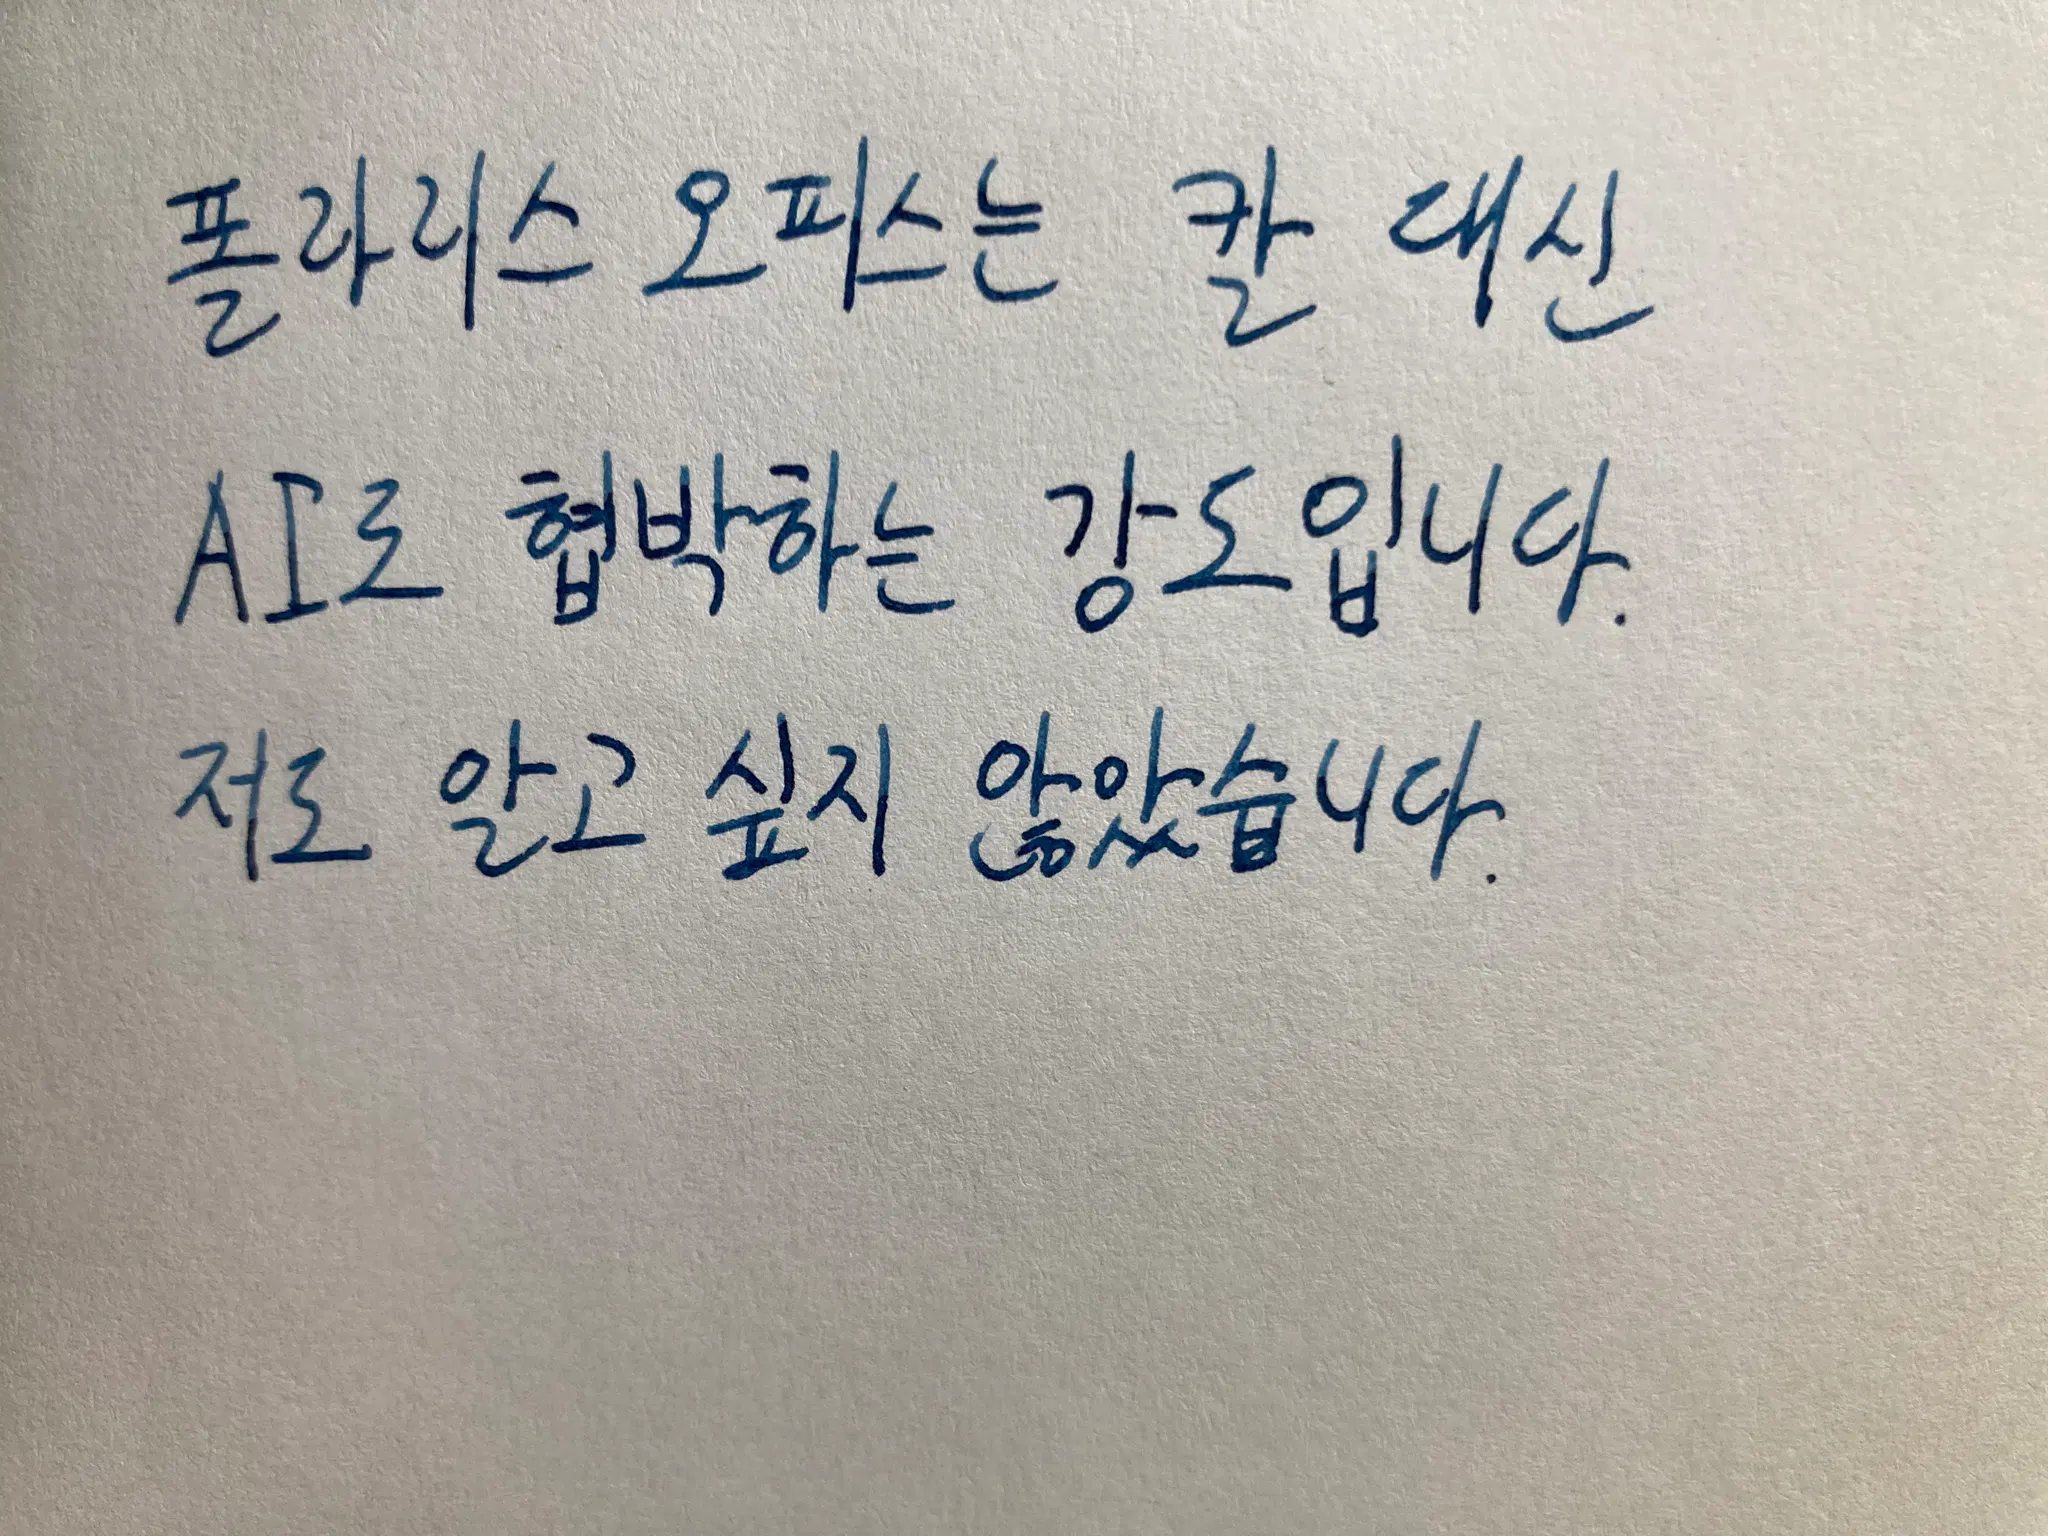 폴라리스 오피스는 칼 대신
AI로 협박하는 강도입니다.
저도 알고 싶지 않았습니다.